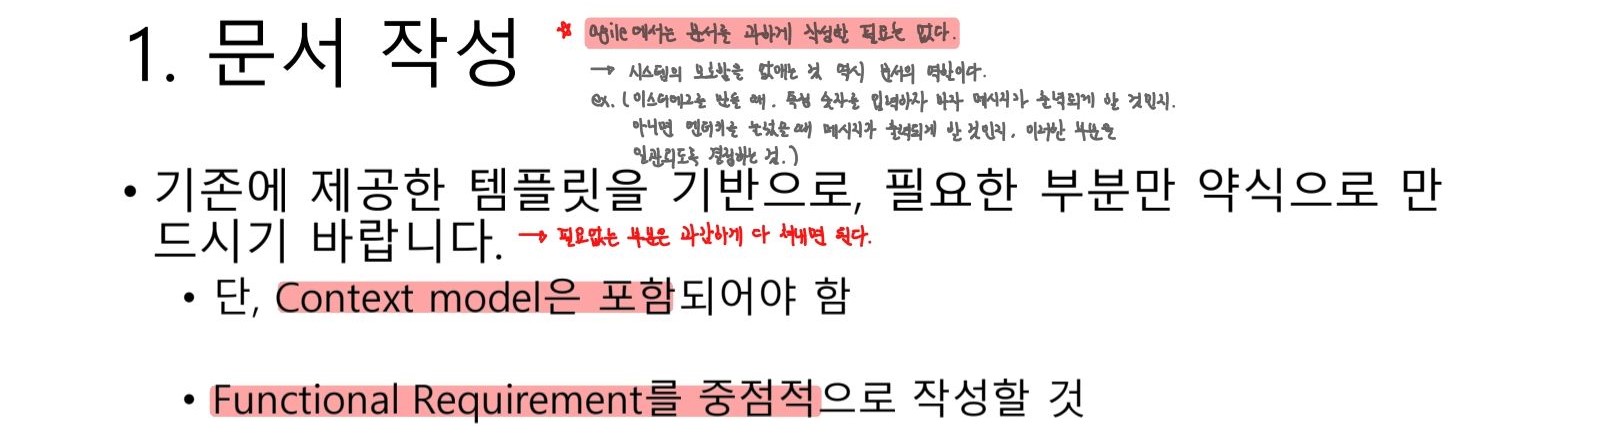 1. 문서 작성
agile에서는 문서를 과하게 작성할 필요는 없다.
→ 시스템의 모호함을 없애는 것 역시 문서의 역할이다.
ex. (이스터에그를 만들 때, 특정 숫자를 입력하자 마자 메시지가 출력되게 할 것인지,
아니면 엔터키를 눌렀을 때 메시지가 출력되게 할 것인지, 이러한 부분을
일관되도록 결정하는 것.)
• 기존에 제공한 템플릿을 기반으로, 필요한 부분만 약식으로 만
드시기 바랍니다. → 필요없는 부분은 과감하게 다 쳐내면 된다.
• 단, Context model은 포함되어야 함
• Functional Requirement를 중점적으로 작성할 것